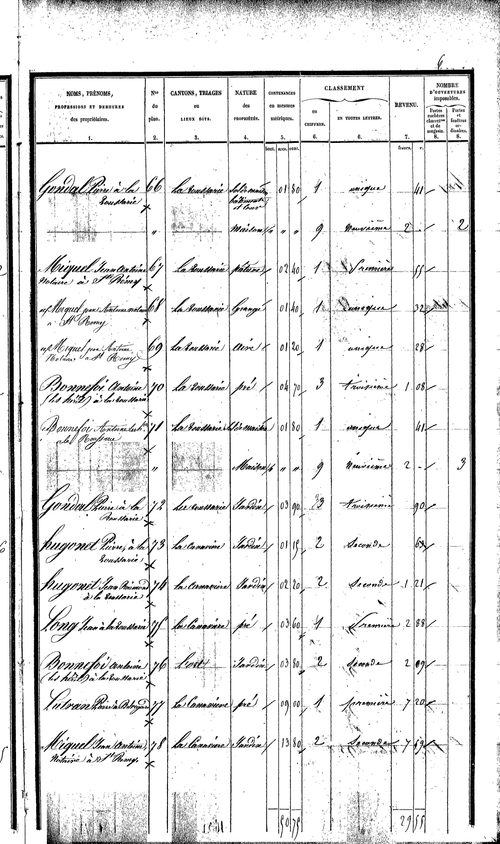 6
NOMS, PRÉNOMS, PROFESSIONS ET DEMEURES des propriétaires. 1.
Nos du plan. 2.
CANTONS, TRIAGES ou LIEUX DITS. 3.
NATURE des PROPRIÉTÉS. 4.
CONTENANCES en mesures métriques. 5.
CLASSEMENT
en CHIFFRES. 6.
EN TOUTES LETTRES. 6.
REVENU. 7.
NOMBRE D'OUVERTURES imposables.
Portes cochères charret.res et de magasin. 8.
Portes et fenêtres ordinaires. 8.
hect. ares. cent. francs. c.
Gondal Pierre à la 66 La Roussarie Sol de maison 01 80 1 unique 41
Roussarie bâtiment et cour
" Maison " " 9 neuvième 2 - 2
Miquel Jean Antoine 67 La Roussarie pâture 02 40 1 Première 55
Notaire à St Rémy
Miquel Antoine 68 La Roussarie Grange 01 40 1 unique 32
à St Remy
Miquel 69 La Roussarie Aire 01 20 1 unique 28
Notaire à St Remy
Bonnefoi Antoine 70 La Roussarie pré 04 70 3 troisième 1 08
(les hérit) à la Roussarie
Bonnefoi Antoine 71 La Roussarie Sol de maison 01 80 1 unique 41
" Maison " " 9 neuvième 2 - 3
Gondal Pierre à la 72 La Roussarie Jardin 03 90 3 troisième 90
Roussarie
hugonet Pierre à la 73 La Canavère Jardin 01 15 2 Seconde 63
Roussarie
hugonet Jean 74 La Canavère Jardin 02 20 2 Seconde 1 21
à la Roussarie
Long Jean à la Roussarie 75 La Canavère pré 03 60 1 Première 2 88
Bonnefoi Antoine 76 L'ort Jardin 03 80 2 Seconde 2 09
(les hérit) à la Roussarie
Lutran Pierre 77 La Canavère pré 09 00 1 première 7 20
Miquel Jean Antoine 78 La Canavère Jardin 13 80 2 Seconde 7 59
Notaire à St Rémy
50 75 29 55